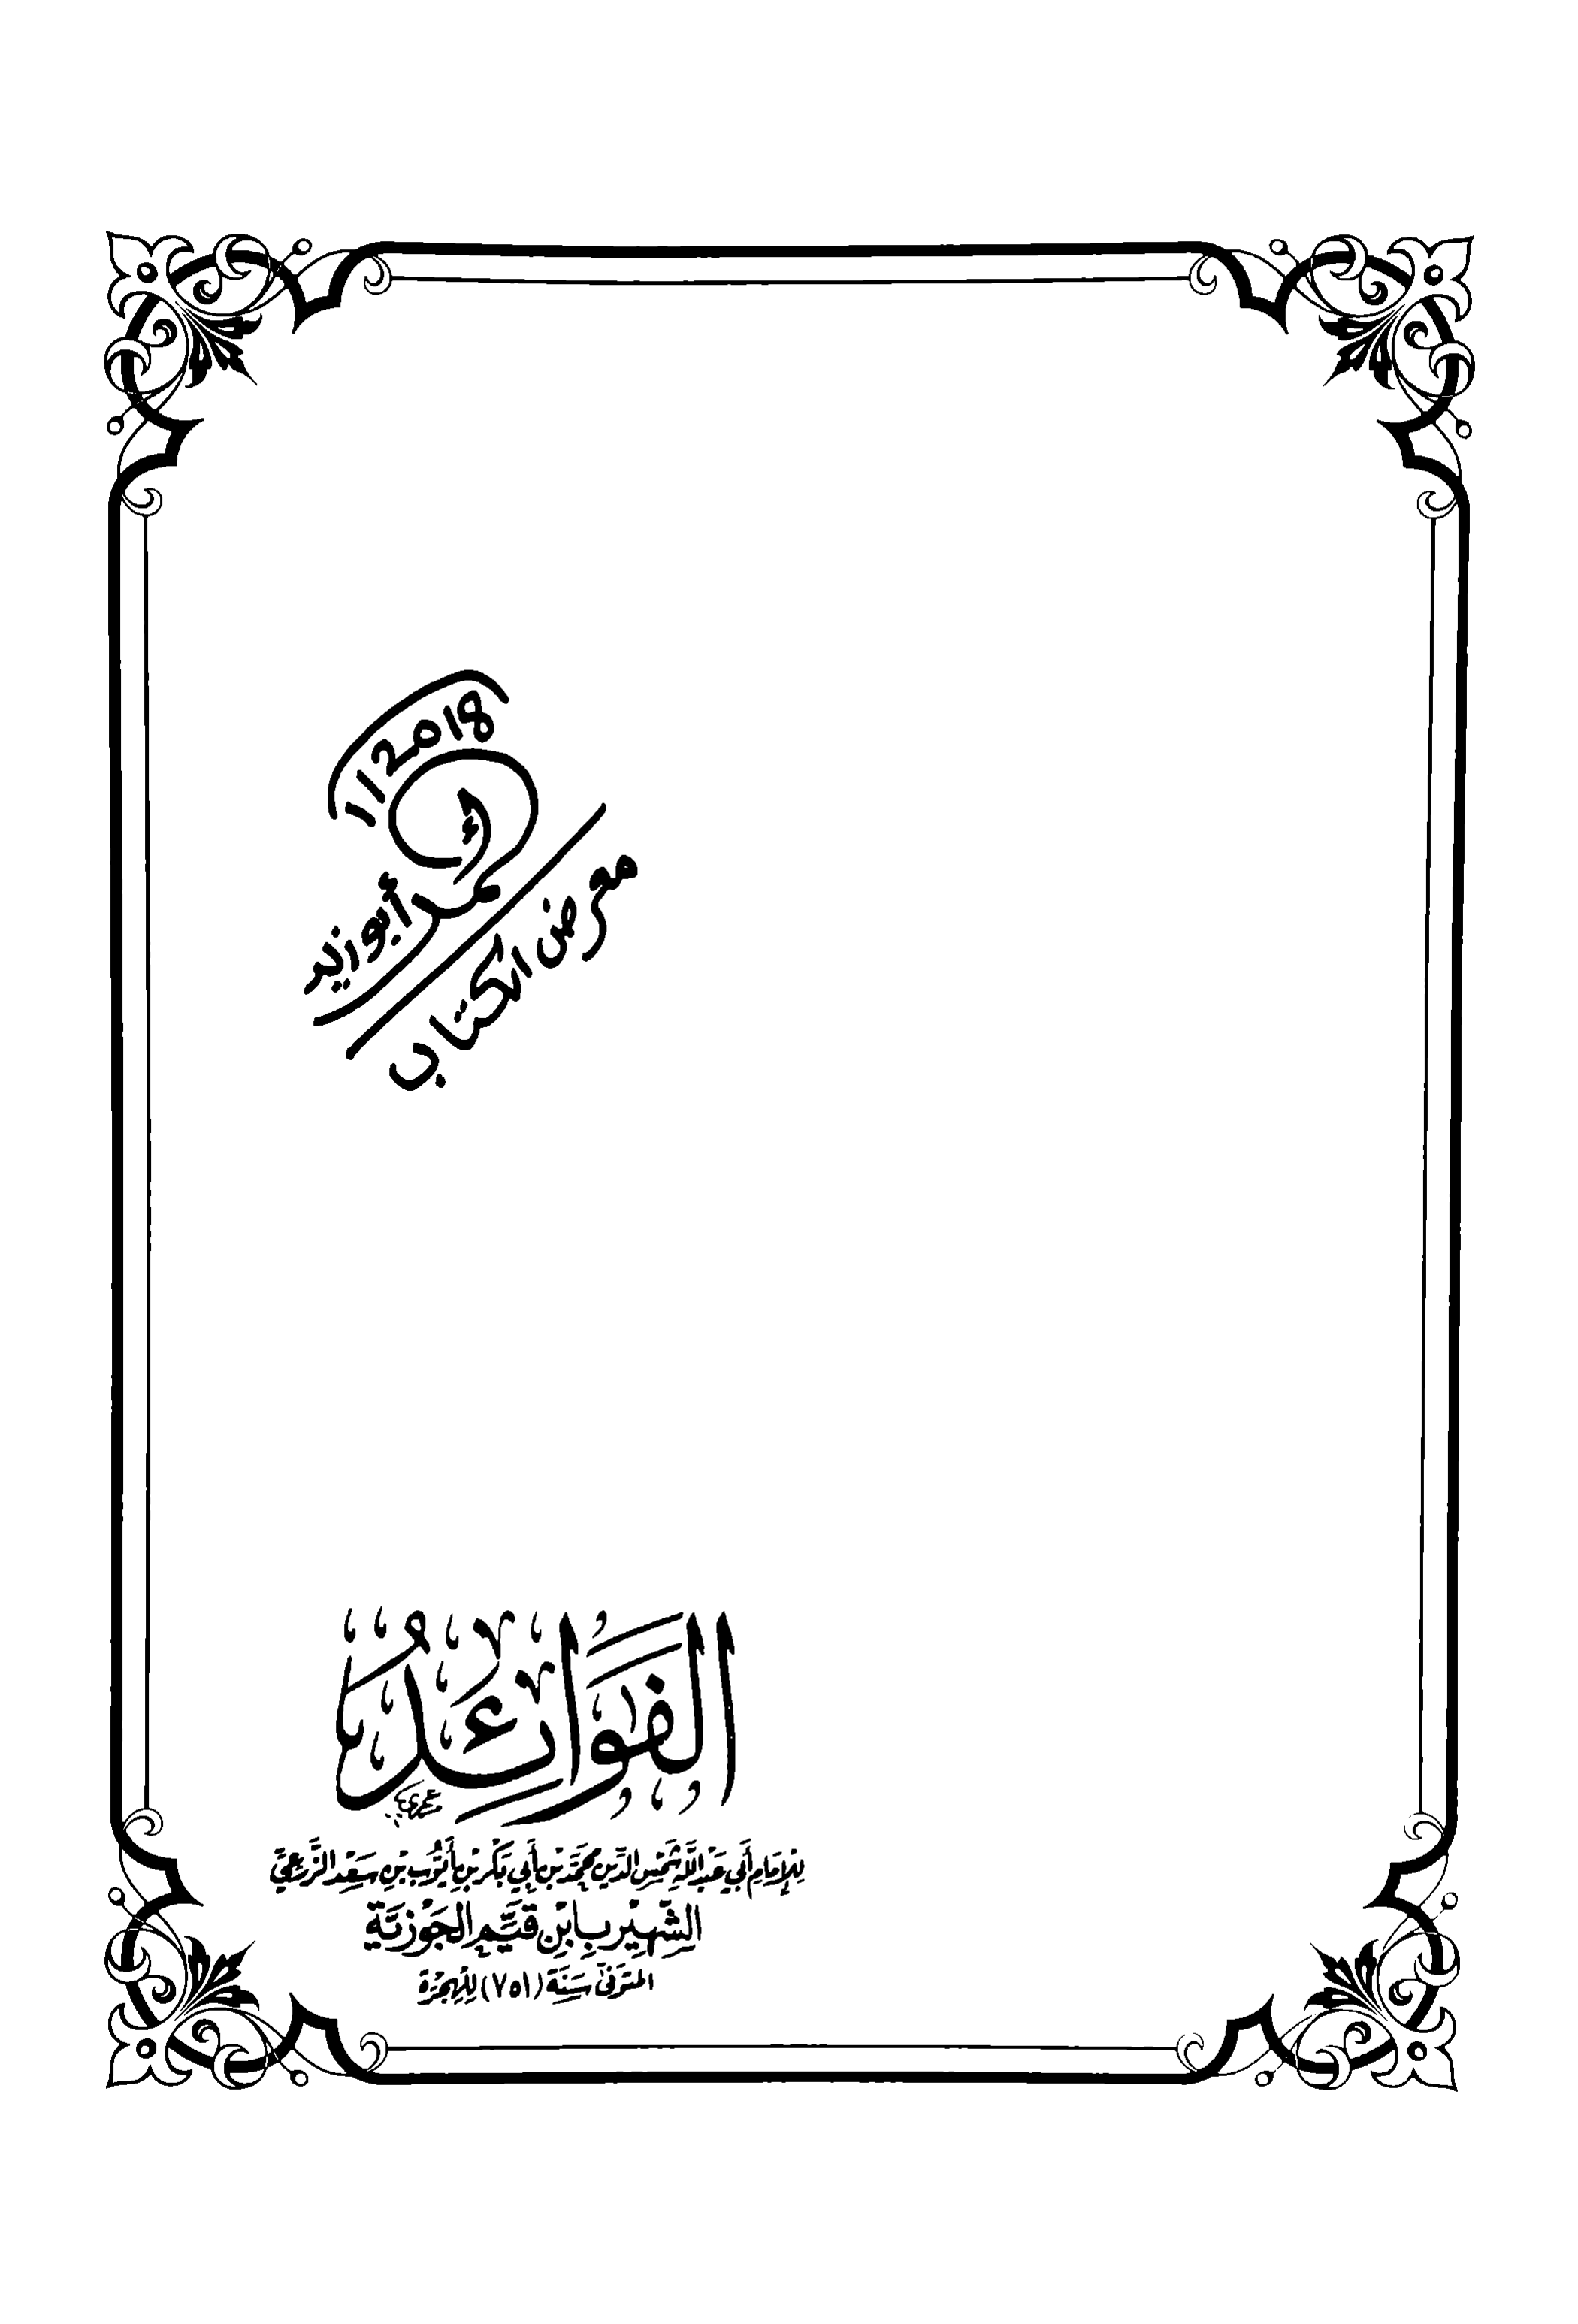 112018
محمد أبوزيد
معرض الكتاب
الفوائد
للإمام أبي عبد الله شمس الدين محمد بن أبي بكر بن أيوب بن سعد الزرعي
الشهير بابن قيم الجوزية
المتوفى سنة (٧٥١) للهجرة